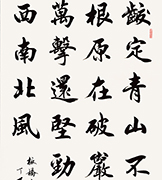 齩定青山不
根原在破巖
萬擊還堅勁
西南北風
板橋
丁